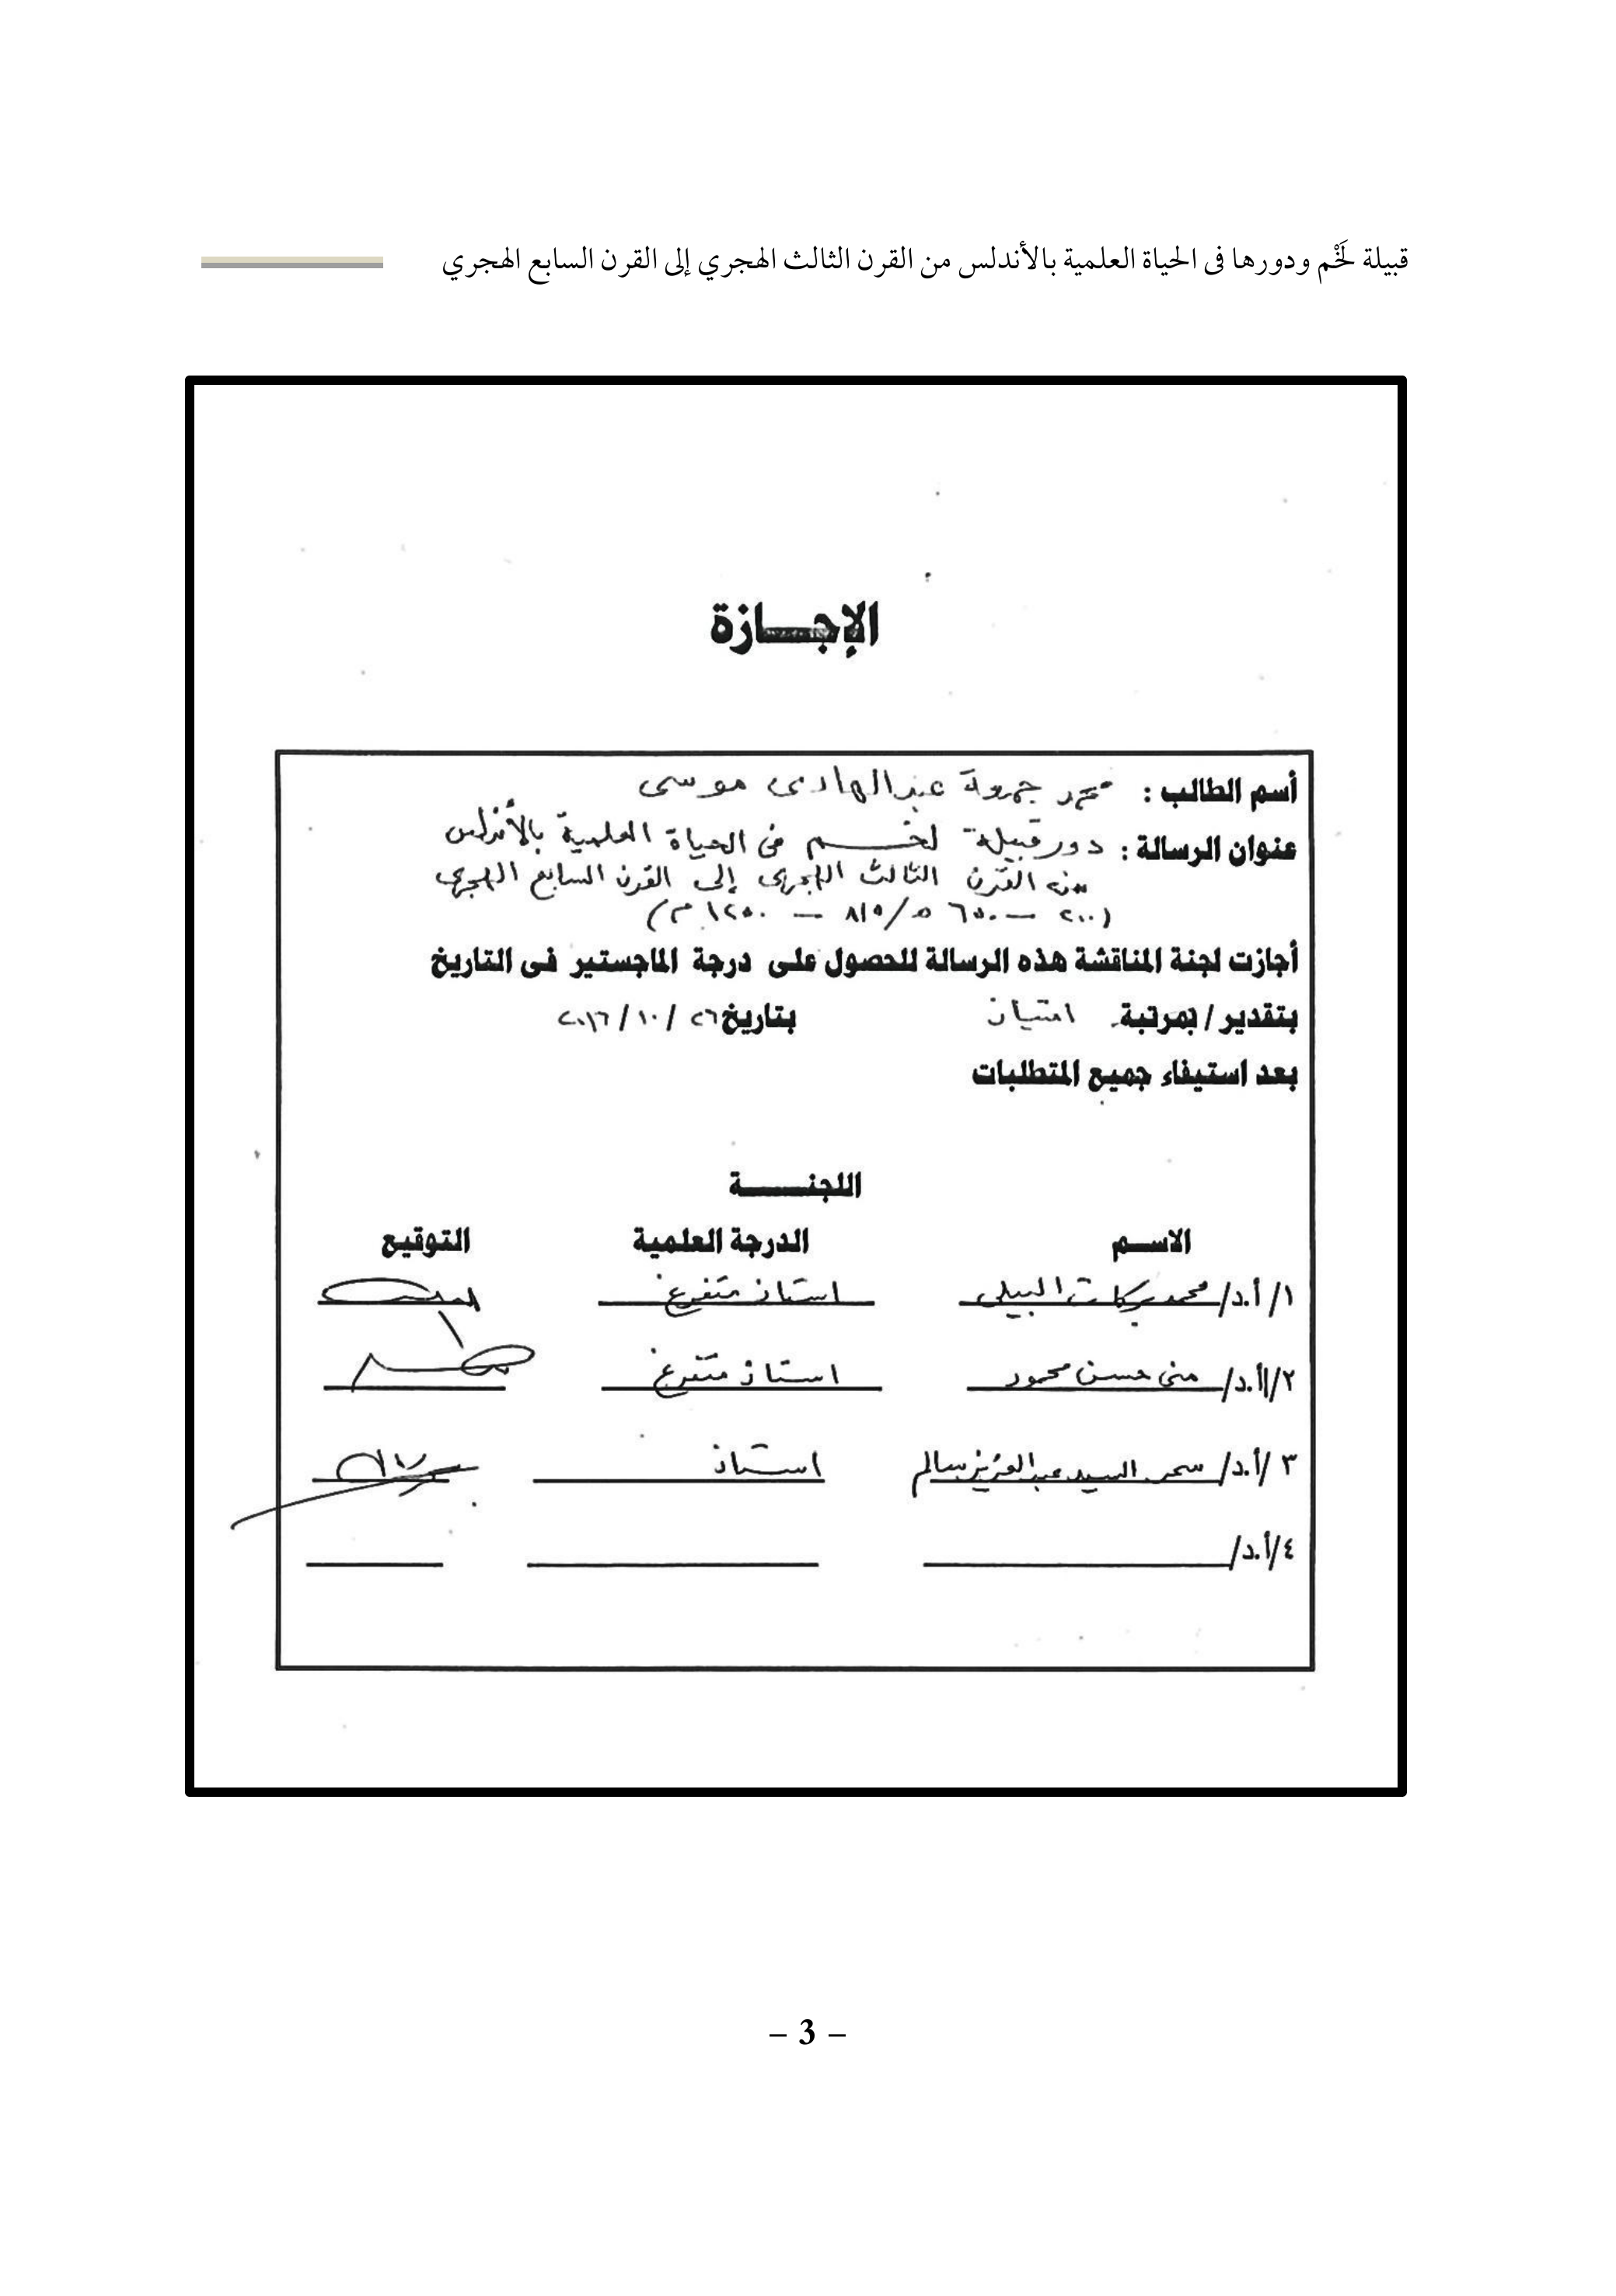 قبيلة لَخْم ودورها فى الحياة العلمية بالأندلس من القرن الثالث الهجري إلى القرن السابع الهجري
الإجــازة
أسم الطالب : محمد جمعة عبدالهادى موسى
عنوان الرسالة : دور قبيلة لخـــم فى الحياة العلمية بالأندلس
من القرن الثالث الهجرى إلى القرن السابع الهجرى
(٢٠٠ – ٦٥٠ هـ/ ٨١٥ – ١٢٥٠ م)
أجازت لجنة المناقشة هذه الرسالة للحصول على درجة الماجستير فى التاريخ
بتقدير / بمرتبة امتياز بتاريخ ٢٦ / ١٠ / ٢٠١٦
بعد استيفاء جميع المتطلبات
اللجنـــــة
الاســم الدرجة العلمية التوقيع
١/ أ.د/ محمد بركات البيلى استاذ متفرغ
٢/أ.د/ منى حسن محمود استاذ متفرغ
٣ /أ.د/ سحر السيد عبدالعزيز سالم استاذ
٤/أ.د/
– 3 –